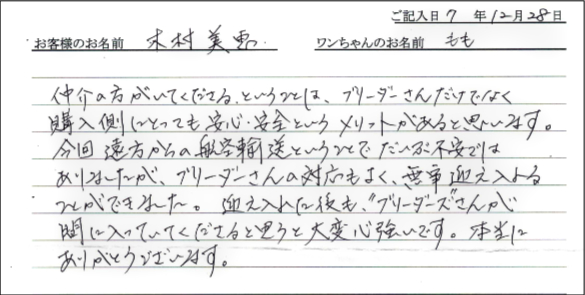 ご記入日 7 年 12月 28日
お客様のお名前 木村 美恵 ワンちゃんのお名前 もも
仲介の方がいてくださる、ということは、ブリーダーさんだけでなく
購入側にとっても安心・安全というメリットがあると思います。
今回 遠方からの航空輸送ということで だいぶ不安では
ありましたが、ブリーダーさんの対応もよく、無事 迎え入れる
ことができました。 迎え入れた後も、"ブリーダーズ"さんが
間に入っていてくださると思うと 大変心強いです。本当に
ありがとうございます。